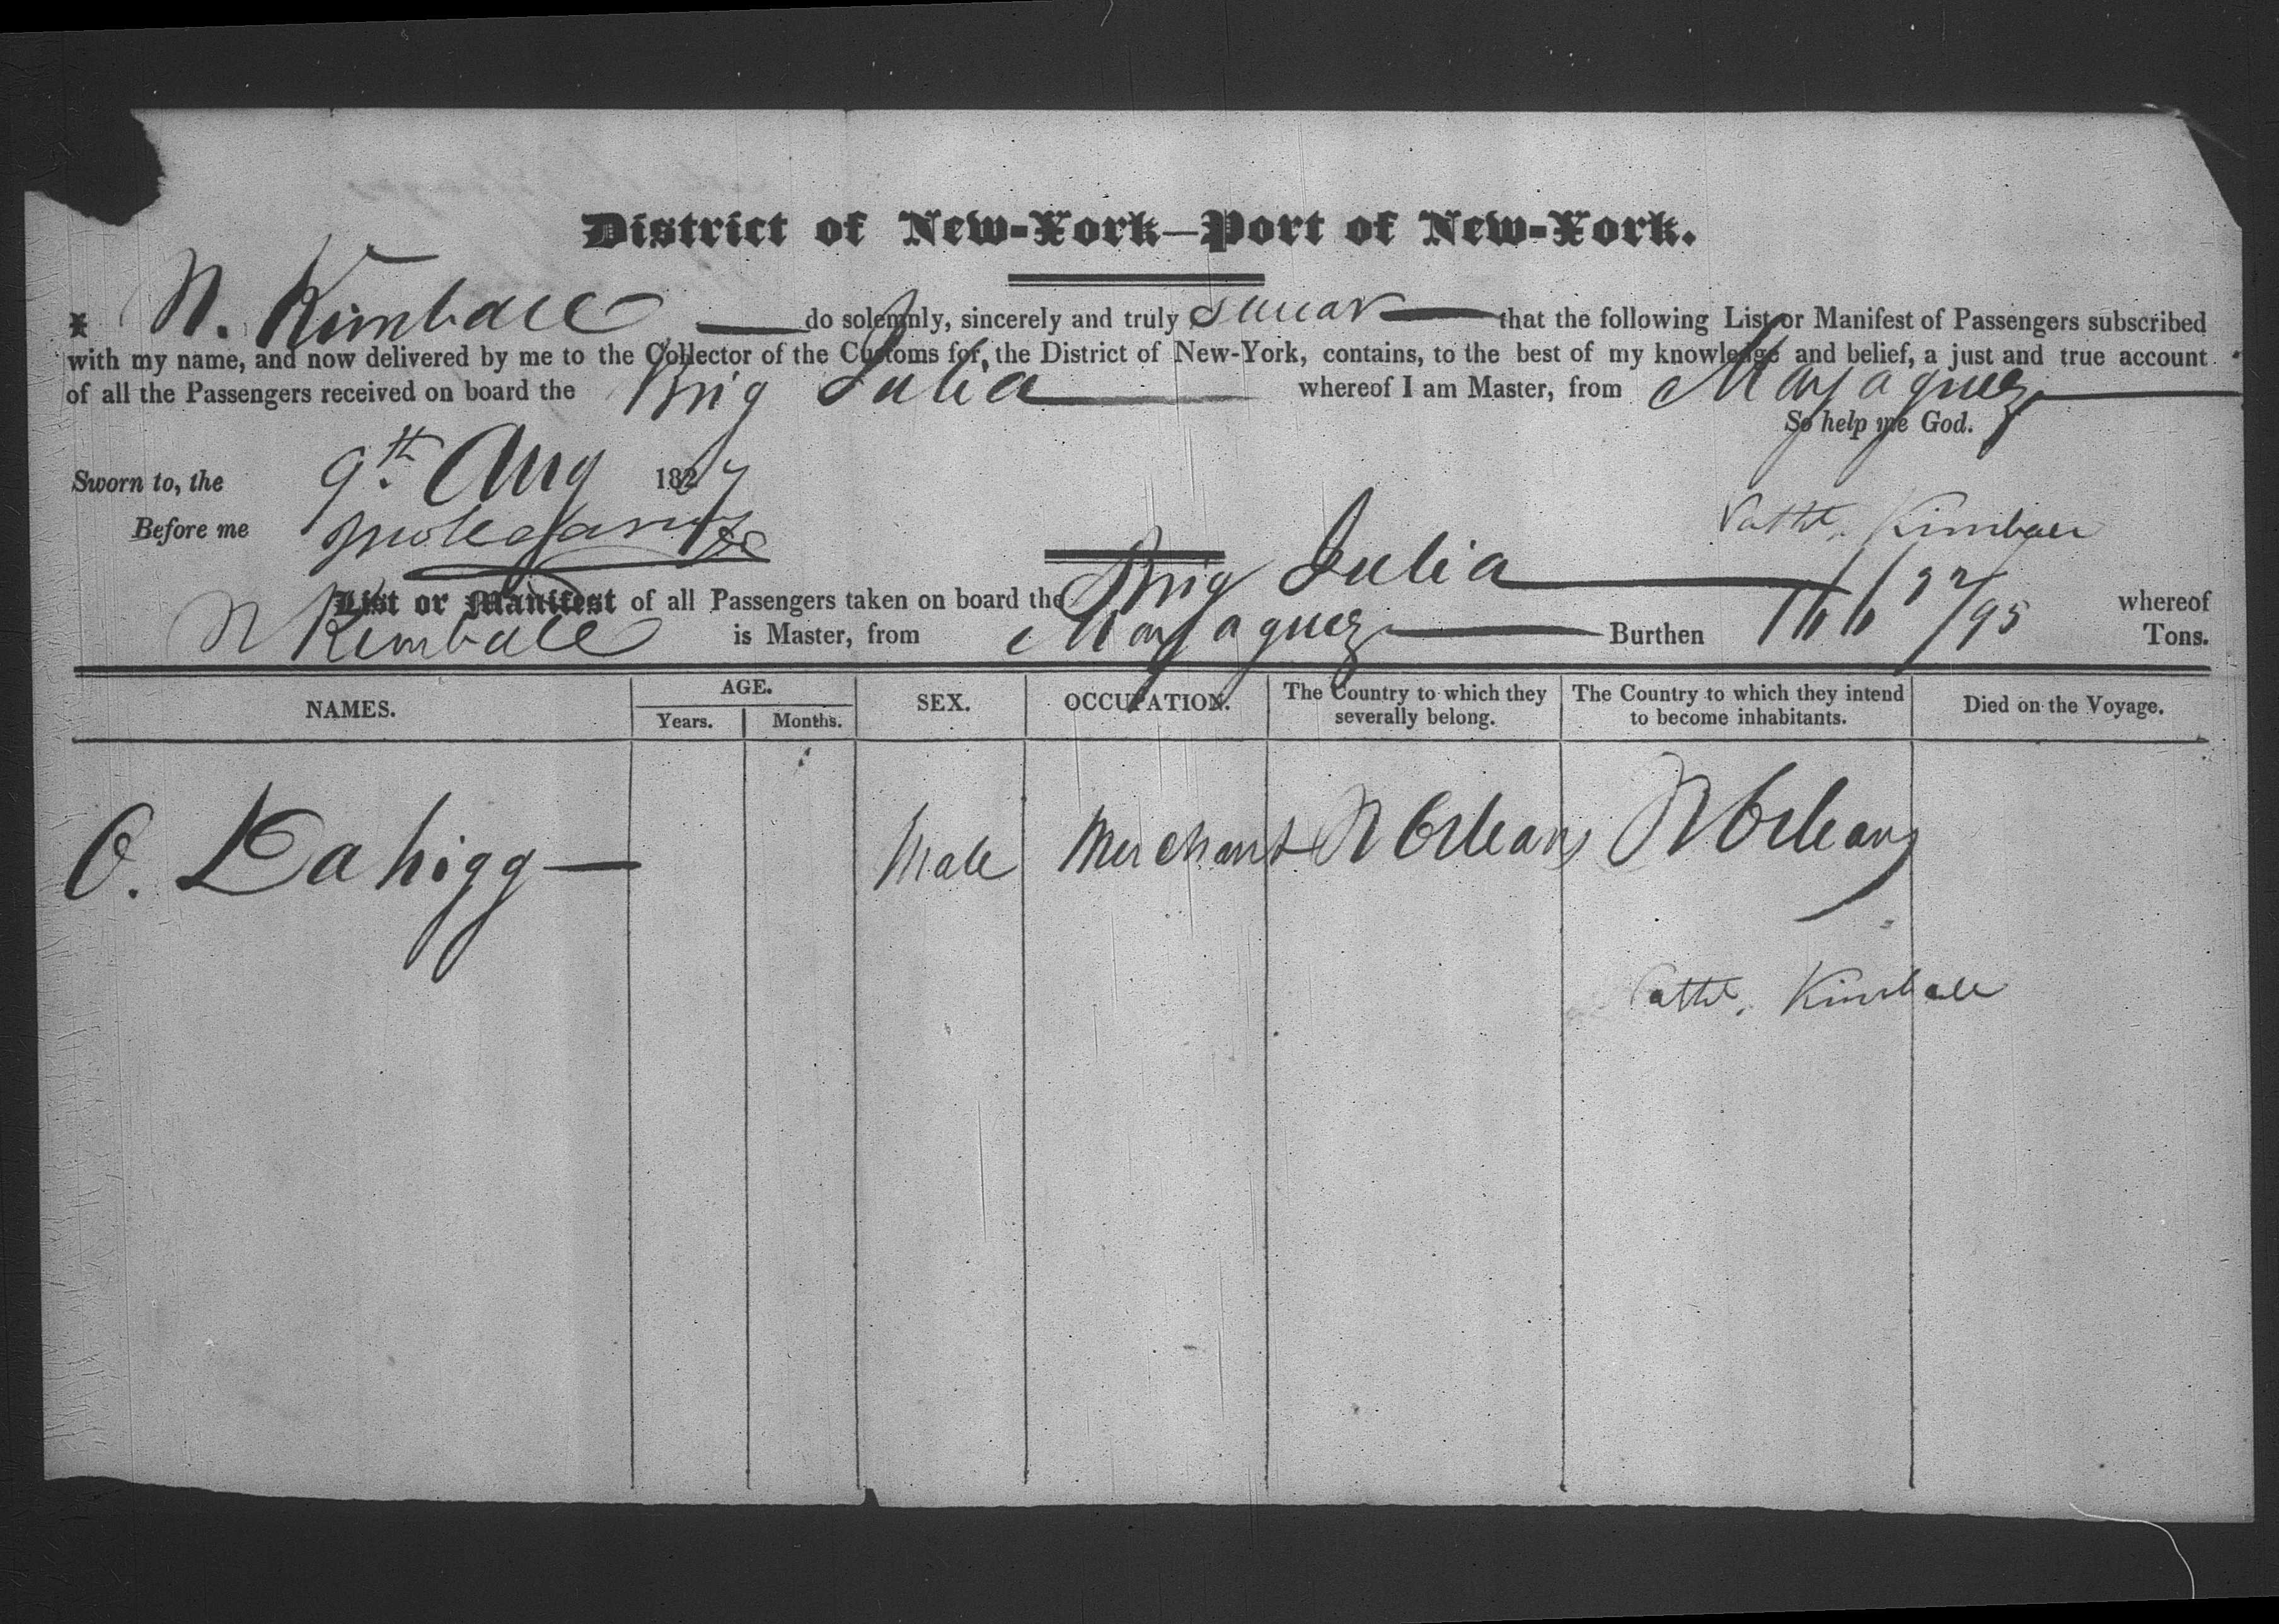 District of New-York—Port of New-York.
I N. Kimball do solemnly, sincerely and truly swear that the following List or Manifest of Passengers subscribed
with my name, and now delivered by me to the Collector of the Customs for the District of New-York, contains, to the best of my knowledge and belief, a just and true account
of all the Passengers received on board the Brig Julia whereof I am Master, from Mayaguez
So help me God.
Sworn to, the 9th. Aug 1827
Before me
Nathl. Kimball
List or Manifest of all Passengers taken on board the Brig Julia whereof
N Kimball is Master, from Mayaguez Burthen 166 92/95 Tons.
NAMES. AGE. Years. Months. SEX. OCCUPATION. The Country to which they severally belong. The Country to which they intend to become inhabitants. Died on the Voyage.
O. Dahigg Male Merchant N Orleans N Orleans
Nathl. Kimball